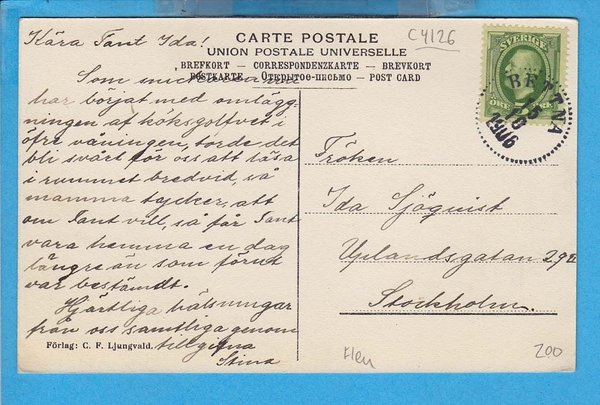 CARTE POSTALE
UNION POSTALE UNIVERSELLE
BREFKORT — CORRESPONDENZKARTE — BREVKORT
POSTKARTE — Открытое письмо — POST CARD
C4126
SVERIGE
ÖRE
BETTNA
15
10
1906
Kära Tant Ida!
Som
har börjat med omlägg-
ningen af köksgolfvet i
öfre våningen, torde det
bli svårt för oss att läsa
i rummet bredvid, så
mamma tycker, att
om Tant vill, så får Tant
vara hemma en dag
längre än som förut
var bestämdt.
Hjärtliga hälsningar
från oss samtliga genom
tillgifna
Stina
Fröken
Ida Sjöquist
Uplandsgatan
Stockholm.
Förlag: C. F. Ljungvald.
Flen
200